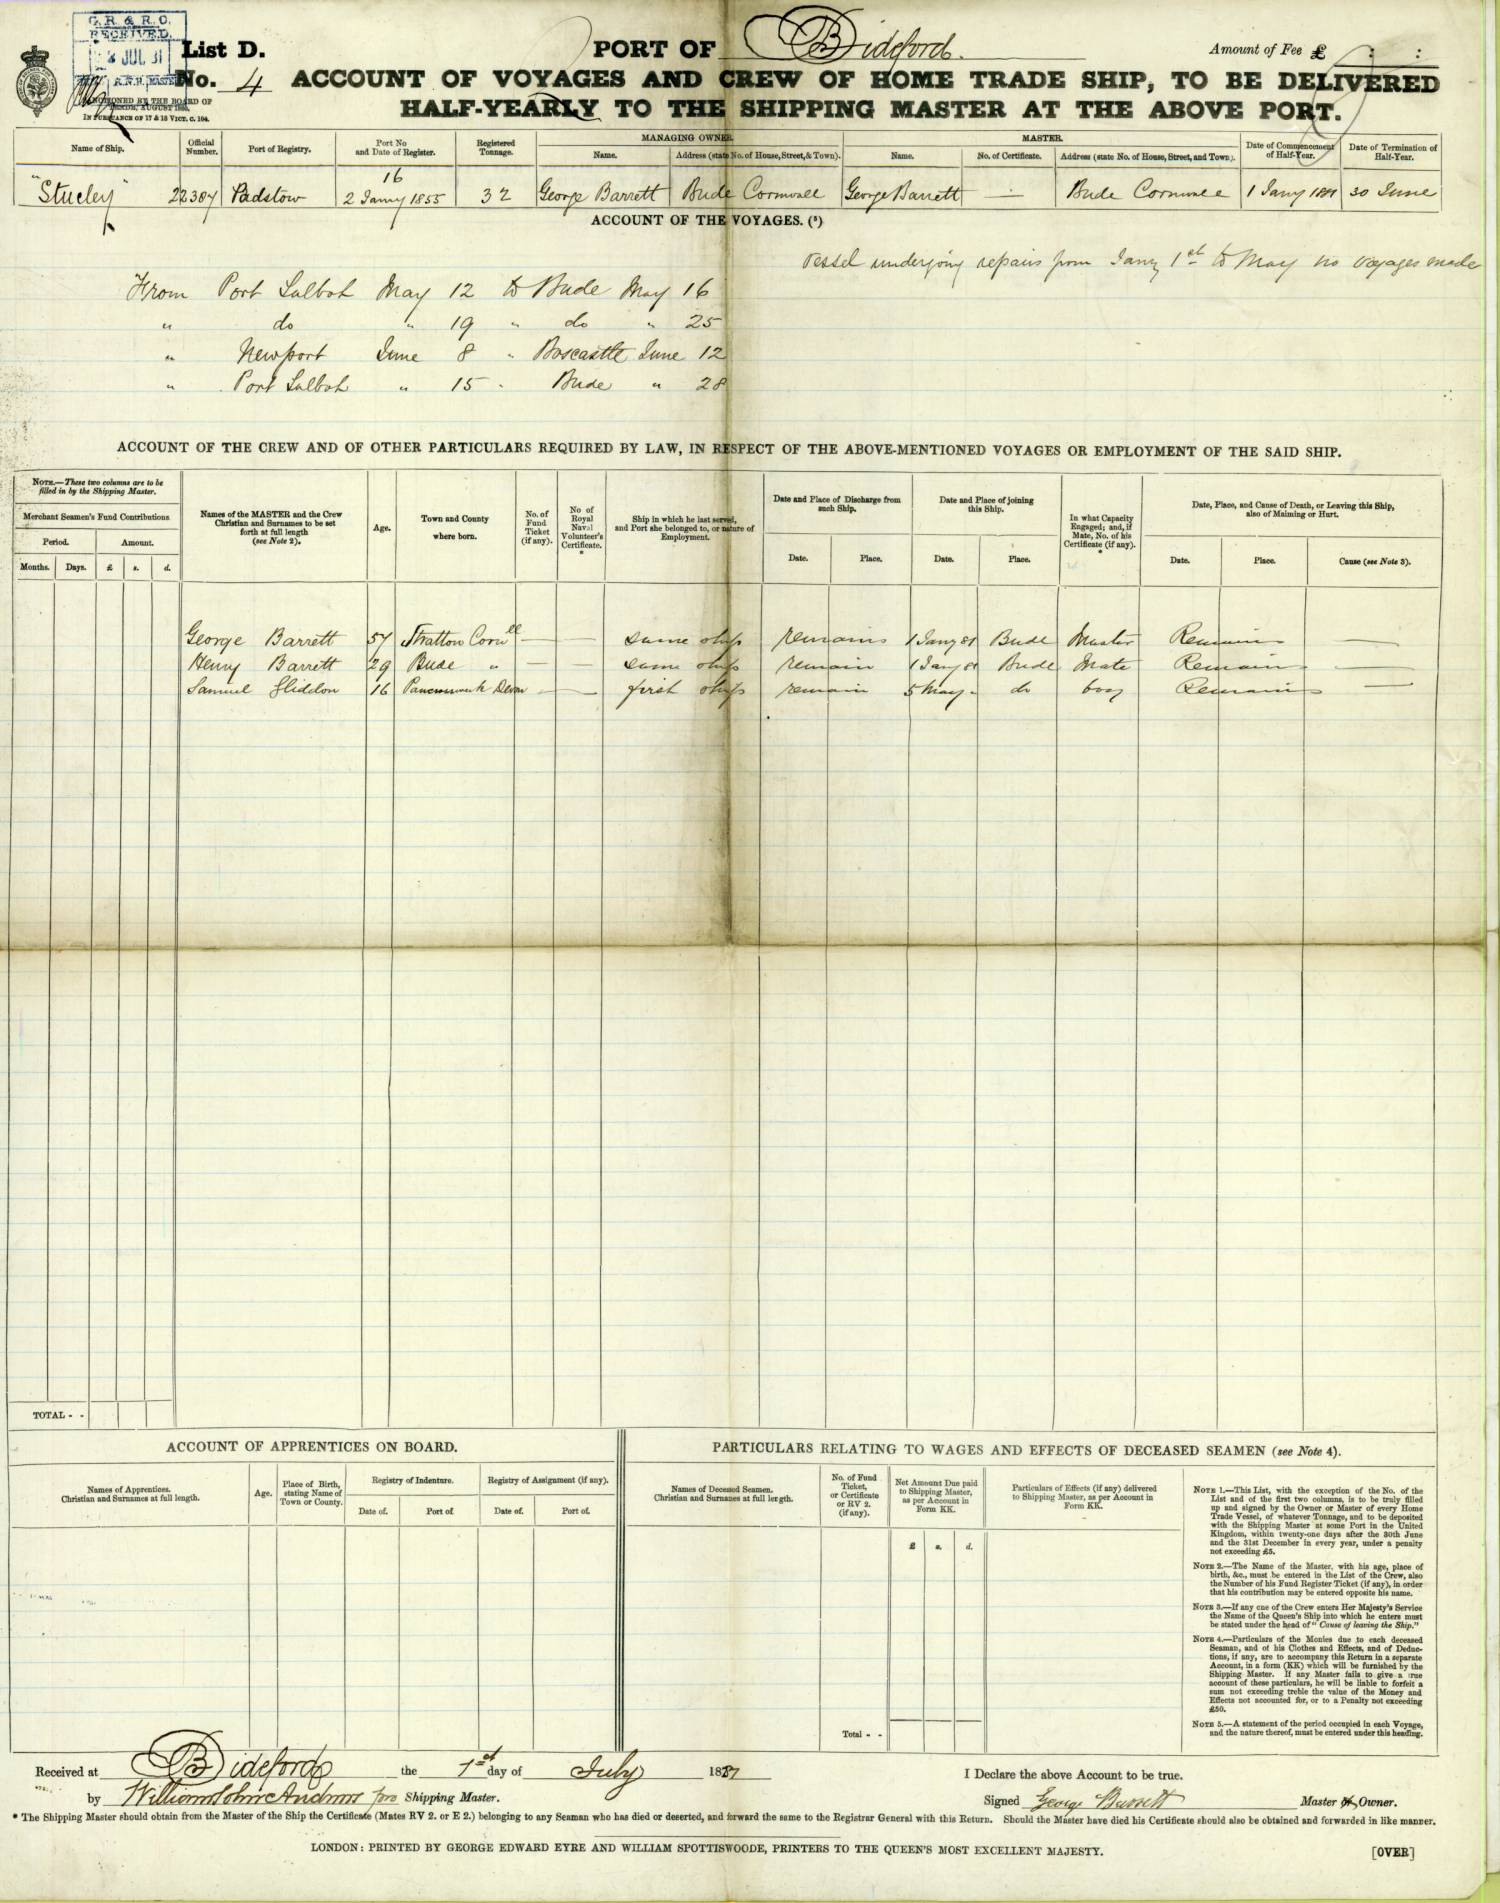 G. R. & R. O.
RECEIVED.
2 JUL 81
List D.
PORT OF Bideford.
Amount of Fee £ : :
No. 4 ACCOUNT OF VOYAGES AND CREW OF HOME TRADE SHIP, TO BE DELIVERED
HALF-YEARLY TO THE SHIPPING MASTER AT THE ABOVE PORT.
SANCTIONED BY THE BOARD OF
TRADE, AUGUST
IN PURSUANCE OF 17 & 18 VICT. C. 104.
Name of Ship.
Official Number.
Port of Registry.
Port No and Date of Register.
Registered Tonnage.
MANAGING OWNER.
Name.
Address (state No. of House, Street, & Town).
MASTER.
Name.
No. of Certificate.
Address (state No. of House, Street, and Town).
Date of Commencement of Half-Year.
Date of Termination of Half-Year.
"Stucley" 22384 Padstow 16 2 Jany 1855 32 George Barrett Bude Cornwall George Barrett — Bude Cornwall 1 Jany 1881 30 June
ACCOUNT OF THE VOYAGES. (5)
Vessel undergoing repairs from Jany 1st to May no voyages made
From Port Talbot May 12 to Bude May 16
" do " 19 " do " 25
" Newport June 8 " Boscastle June 12
" Port Talbot " 15 " Bude " 28
ACCOUNT OF THE CREW AND OF OTHER PARTICULARS REQUIRED BY LAW, IN RESPECT OF THE ABOVE-MENTIONED VOYAGES OR EMPLOYMENT OF THE SAID SHIP.
NOTE.—These two columns are to be filled in by the Shipping Master.
Merchant Seamen's Fund Contributions
Period.
Amount.
Months.
Days.
£
s.
d.
Names of the MASTER and the Crew
Christian and Surnames to be set
forth at full length
(see Note 2).
Age.
Town and County
where born.
No. of Fund Ticket (if any).
No of Royal Naval Volunteer's Certificate. *
Ship in which he last served,
and Port she belonged to, or nature of
Employment.
Date and Place of Discharge from such Ship.
Date.
Place.
Date and Place of joining this Ship.
Date.
Place.
In what Capacity Engaged; and, if Mate, No. of his Certificate (if any). *
Date, Place, and Cause of Death, or Leaving this Ship,
also of Maiming or Hurt.
Date.
Place.
Cause (see Note 3).
George Barrett 57 Stratton Cornll — — same ship remains 1 Jany 81 Bude Master Remains —
Henry Barrett 29 Bude " — — same ship remain 1 Jany 81 Bude Mate Remains —
Samuel Gliddon 16 Devon — — first ship remain 5 May " do boy Remains —
TOTAL - -
ACCOUNT OF APPRENTICES ON BOARD.
Names of Apprentices.
Christian and Surnames at full length.
Age.
Place of Birth, stating Name of Town or County.
Registry of Indenture.
Date of.
Port of.
Registry of Assignment (if any).
Date of.
Port of.
PARTICULARS RELATING TO WAGES AND EFFECTS OF DECEASED SEAMEN (see Note 4).
Names of Deceased Seamen.
Christian and Surnames at full length.
No. of Fund Ticket, or Certificate or RV 2. (if any).
Net Amount Due paid to Shipping Master, as per Account in Form KK.
£
s.
d.
Particulars of Effects (if any) delivered
to Shipping Master, as per Account in
Form KK.
Total - -
NOTE 1.—This List, with the exception of the No. of the
List and of the first two columns, is to be truly filled
up and signed by the Owner or Master of every Home
Trade Vessel, of whatever Tonnage, and to be deposited
with the Shipping Master at some Port in the United
Kingdom, within twenty-one days after the 30th June
and the 31st December in every year, under a penalty
not exceeding £5.
NOTE 2.—The Name of the Master, with his age, place of
birth, &c., must be entered in the List of the Crew, also
the Number of his Fund Register Ticket (if any), in order
that his contribution may be entered opposite his name.
NOTE 3.—If any one of the Crew enters Her Majesty's Service
the Name of the Queen's Ship into which he enters must
be stated under the head of "Cause of leaving the Ship."
NOTE 4.—Particulars of the Monies due to each deceased
Seaman, and of his Clothes and Effects, and of Deduc-
tions, if any, are to accompany this Return in a separate
Account, in a form (KK) which will be furnished by the
Shipping Master. If any Master fails to give a true
account of these particulars, he will be liable to forfeit a
sum not exceeding treble the value of the Money and
Effects not accounted for, or to a Penalty not exceeding
£50.
NOTE 5.—A statement of the period occupied in each Voyage,
and the nature thereof, must be entered under this heading.
Received at Bideford the 1st day of July 1881
I Declare the above Account to be true.
by William John Andrews pro Shipping Master.
Signed George Barrett Master or Owner.
* The Shipping Master should obtain from the Master of the Ship the Certificate (Mates RV 2. or E 2.) belonging to any Seaman who has died or deserted, and forward the same to the Registrar General with this Return. Should the Master have died his Certificate should also be obtained and forwarded in like manner.
LONDON: PRINTED BY GEORGE EDWARD EYRE AND WILLIAM SPOTTISWOODE, PRINTERS TO THE QUEEN'S MOST EXCELLENT MAJESTY.
[OVER]